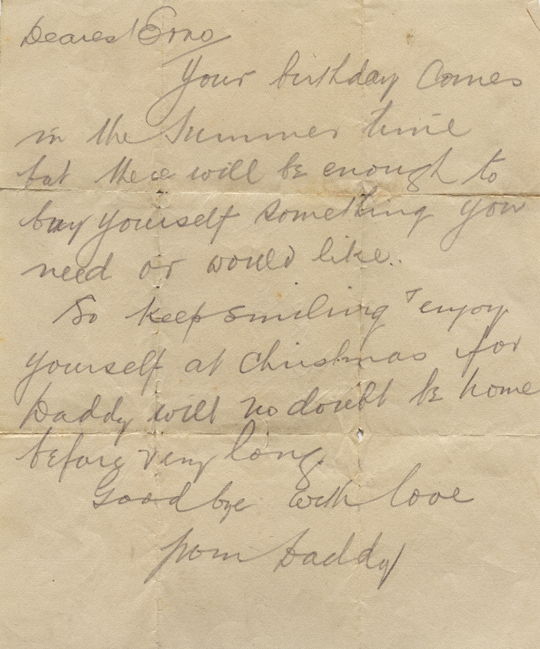 Dearest Erno
Your birthday comes
in the Summer time
but there will be enough to
buy yourself something you
need or would like.
So keep smiling & enjoy
yourself at Christmas for
Daddy will no doubt be home
before very long.
Goodbye with love
from Daddy